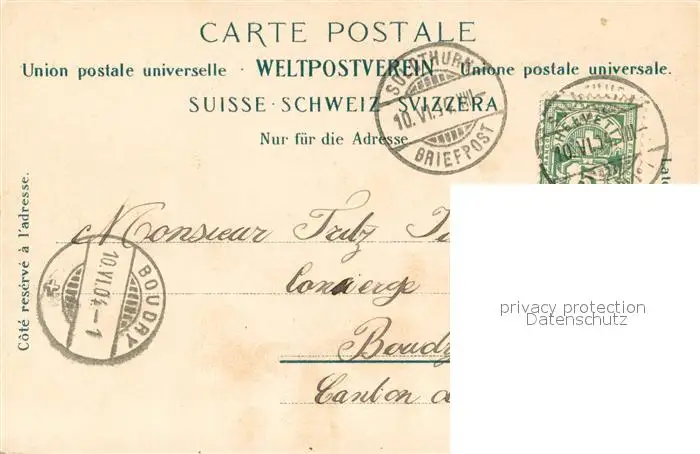 CARTE POSTALE
Union postale universelle · WELTPOSTVEREIN · Unione postale universale.
SUISSE · SCHWEIZ · SVIZZERA
Nur für die Adresse
SOLOTHURN
10.VI.04
BRIEFPOST
HELVETIA
10.VI.04
Côté reservé à l'adresse.
Monsieur Fritz
Concierge
BOUDRY
10.VI.04-1
Canton
privacy protection
Datenschutz